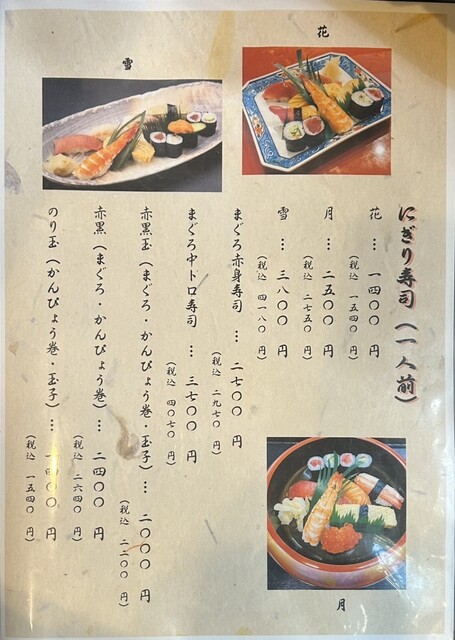 雪
花
にぎり寿司（一人前）
花 … 一四〇〇 円
（税込 一五四〇 円）
月 … 二五〇〇 円
（税込 二七五〇 円）
雪 … 三八〇〇 円
（税込 四一八〇 円）
まぐろ赤身寿司 … 二七〇〇 円
（税込 二九七〇 円）
まぐろ中トロ寿司 … 三七〇〇 円
（税込 四〇七〇 円）
赤黒玉（まぐろ・かんぴょう巻・玉子）… 二〇〇〇 円
（税込 二二〇〇 円）
赤黒（まぐろ・かんぴょう巻）… 二四〇〇 円
（税込 二六四〇 円）
のり玉（かんぴょう巻・玉子）… 一四〇〇 円
（税込 一五四〇 円）
月